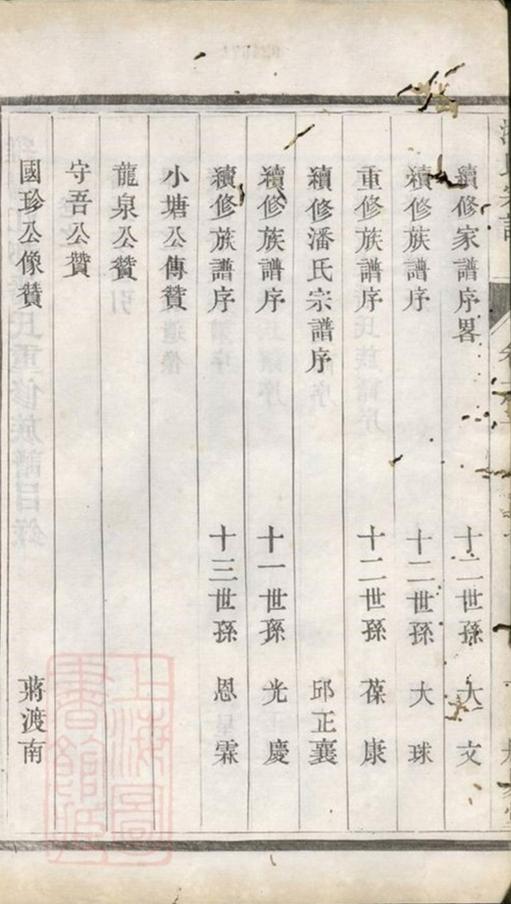 續修家譜序畧 十二世孫 大文
續修族譜序 十二世孫 大球
重修族譜序 十二世孫 葆康
續修潘氏宗譜序 邱正襄
續修族譜序 十一世孫 光慶
續修族譜序 十三世孫 恩霖
小塘公傳贊
龍泉公贊
守吾公贊
國珍公像贊 蔣渡南
上海圖書館藏